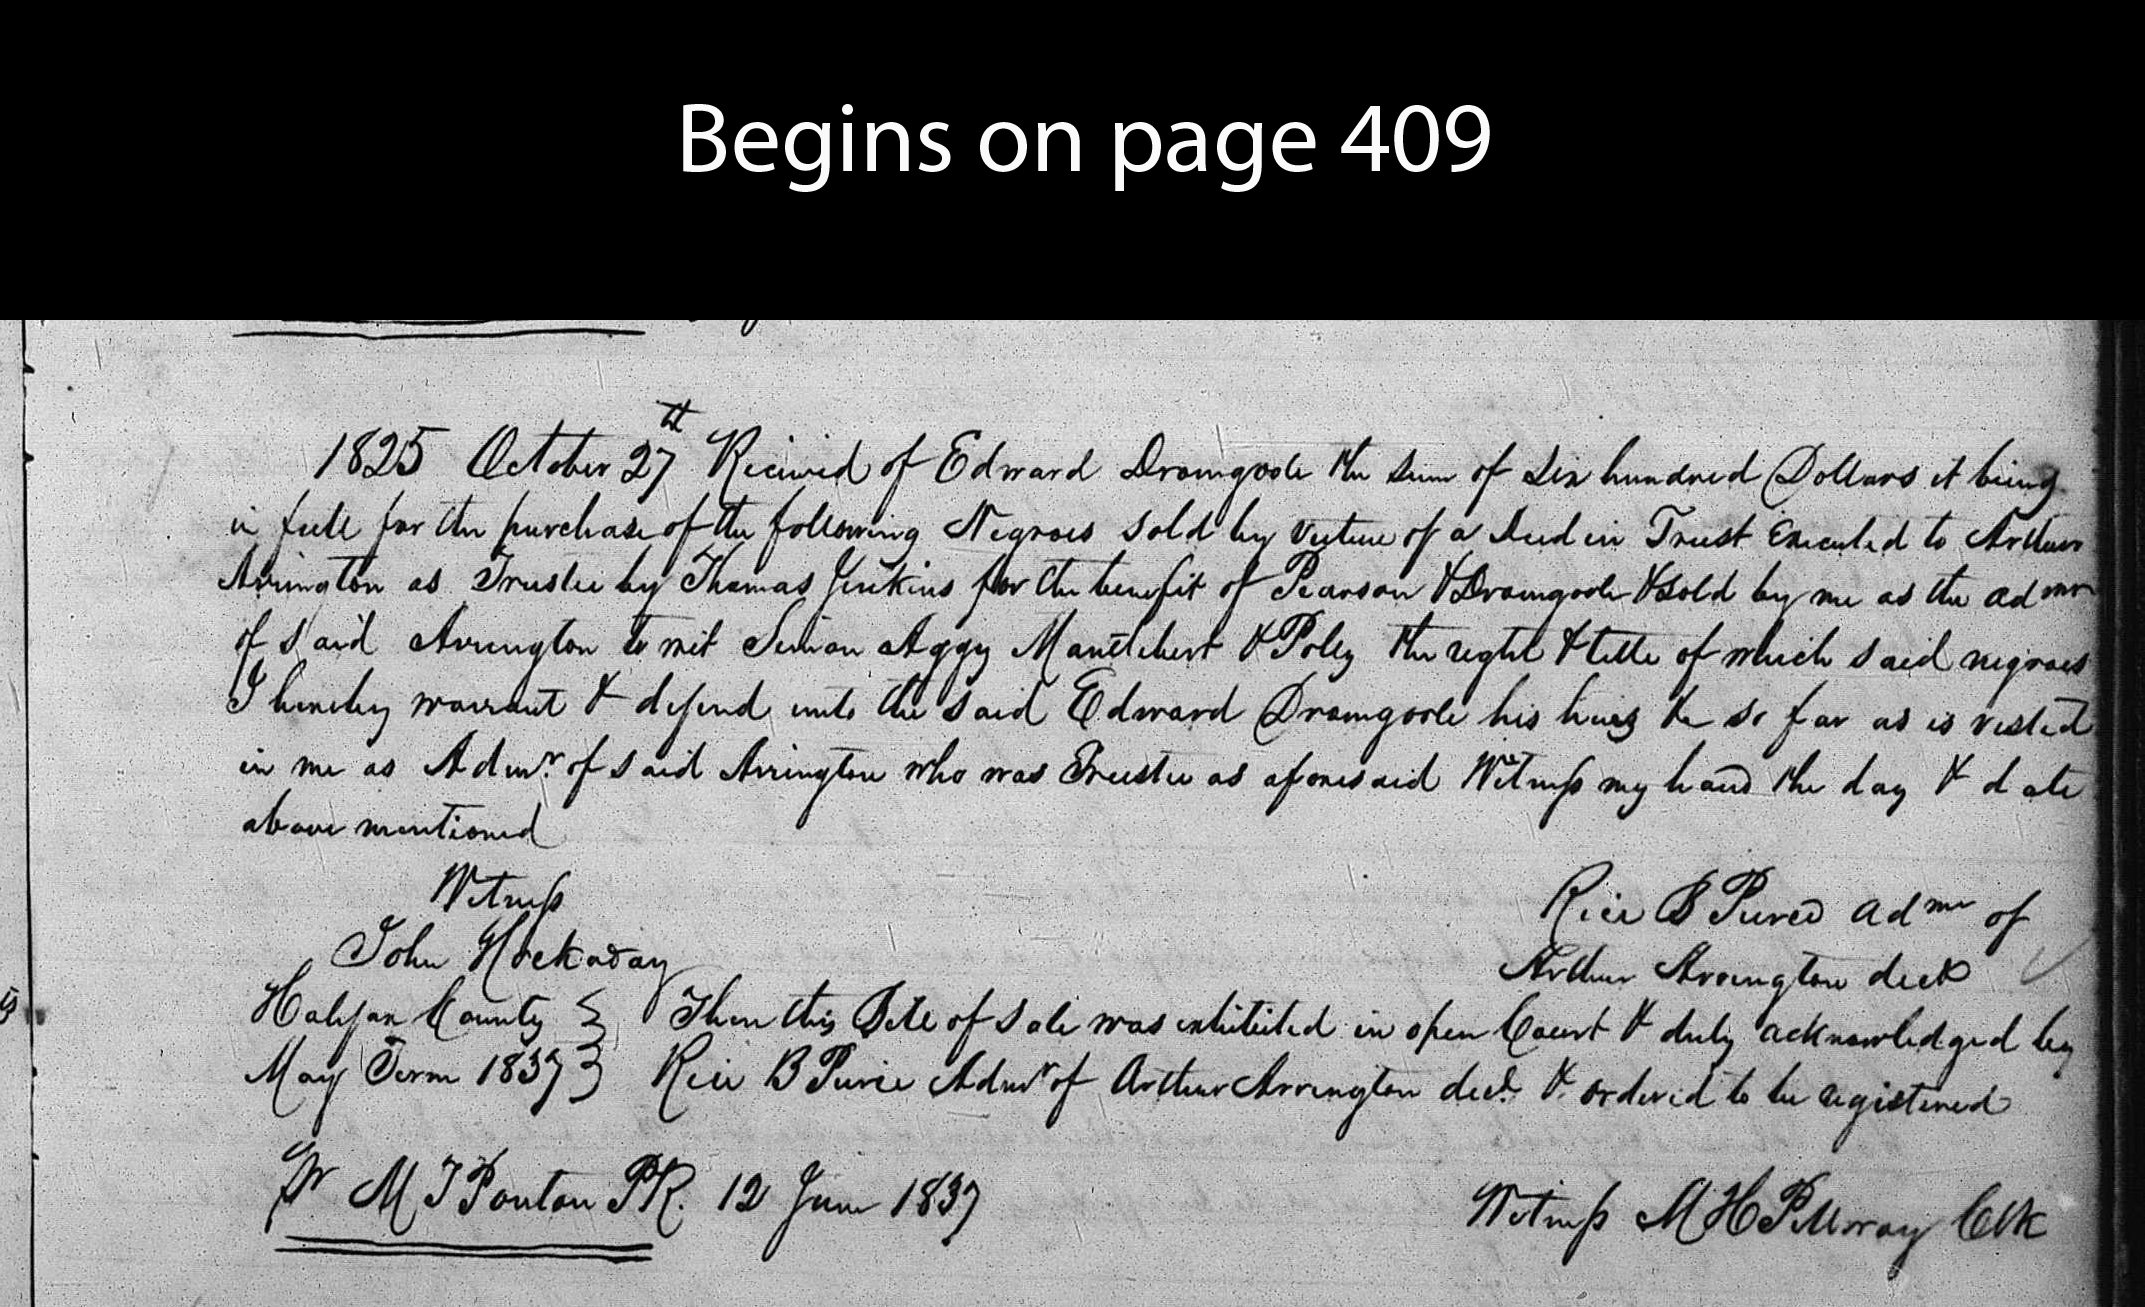 Begins on page 409
1825 October 27th Received of Edward Dromgoole the Sum of Six hundred Dollars it being
in full for the purchase of the following Negroes Sold by virtue of a Deed in Trust Executed to Arthur
Arrington as Trustee by Thomas Jenkins for the benefit of Pearson & Dromgoole & Sold by me as the admr
of said Arrington to wit Aggy & Poley the right & title of which said negroes
I hereby warrant & defend unto the said Edward Dromgoole his heirs &c so far as is vested
in me as Admr. of said Arrington who was Trustee as aforesaid Witness my hand the day & date
above mentioned
Witness
Rice B Pierce admr of
John Hockaday
Arthur Arrington decd
Halifax County } Then this Bill of Sale was exhibited in open Court & duly acknowledged by
May Term 1837 } Rice B Pierce Admr of Arthur Arrington decd. & ordered to be registered
Pr M T Ponton PR. 12 June 1837
Witness M H Pettway Clk